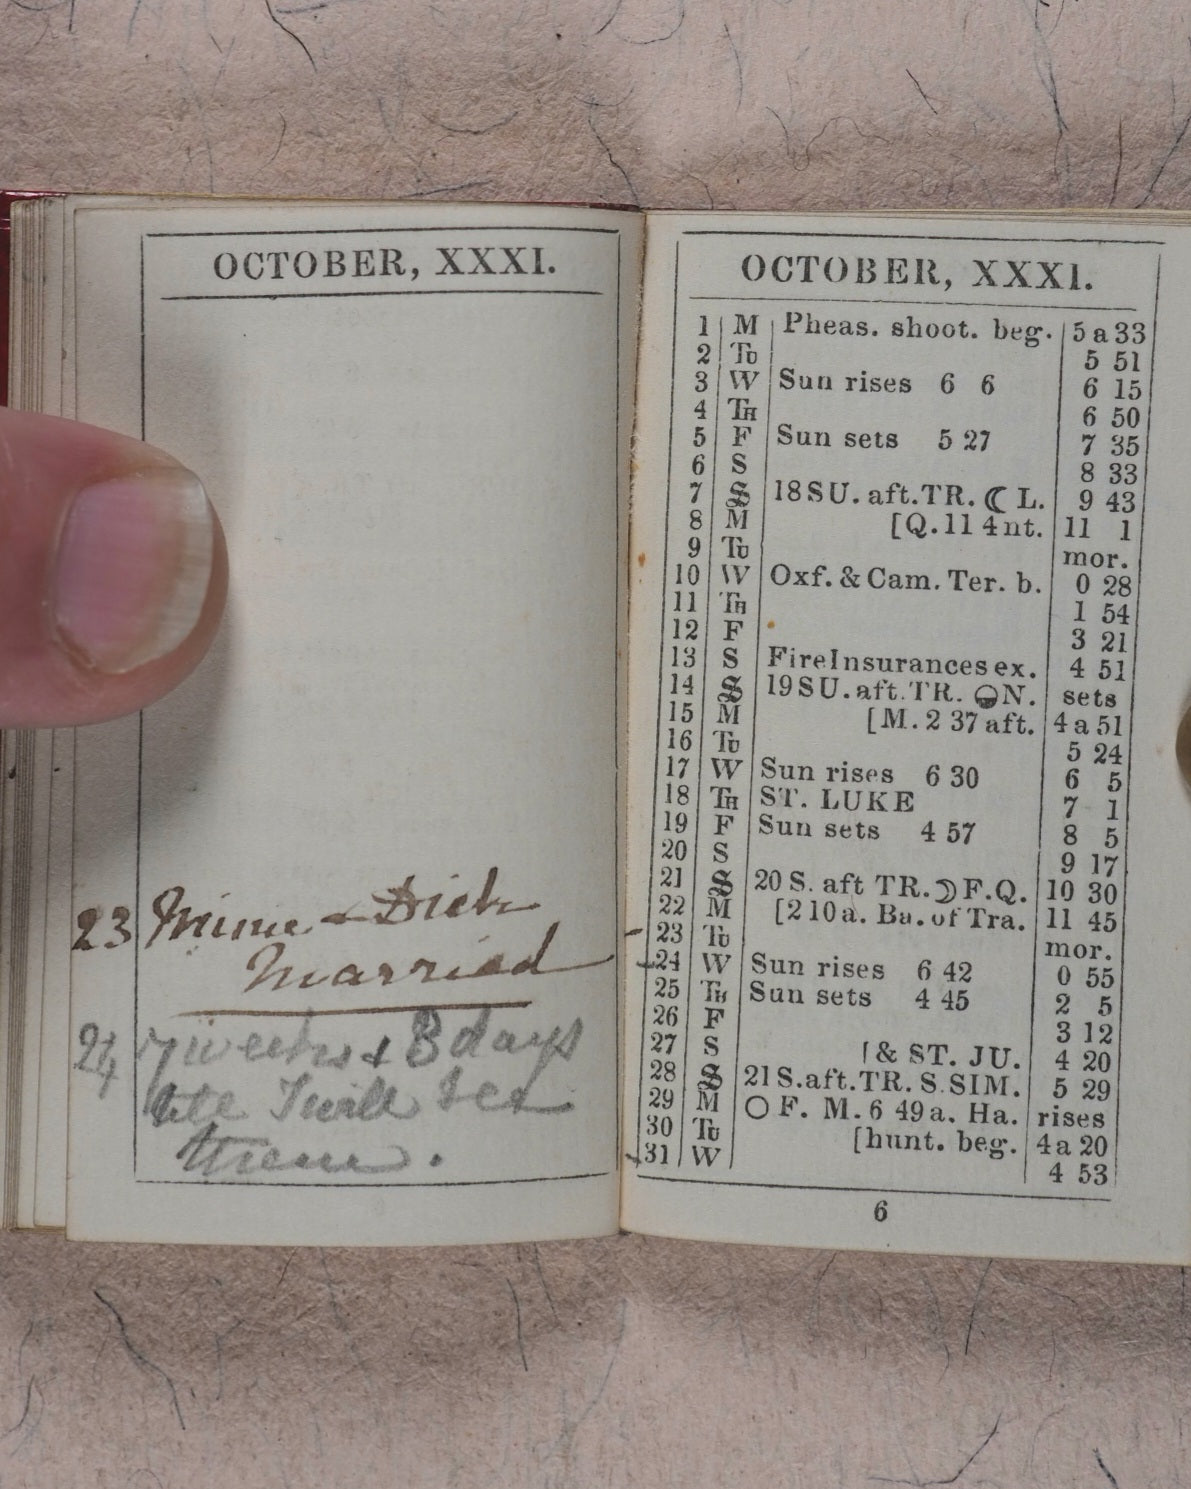 OCTOBER, XXXI.
23 Minnie & Dick
Married
24 7 weeks & 3 days
late I will see
them.
OCTOBER, XXXI.
1 M Pheas. shoot. beg. 5 a 33
2 Tu 5 51
3 W Sun rises 6 6 6 15
4 Th 6 50
5 F Sun sets 5 27 7 35
6 S 8 33
7 S 18 SU. aft. TR. ☾ L. 9 43
8 M [Q. 11 4 nt. 11 1
9 Tu mor.
10 W Oxf. & Cam. Ter. b. 0 28
11 Th 1 54
12 F 3 21
13 S Fire Insurances ex. 4 51
14 S 19 SU. aft. TR. N. sets
15 M [M. 2 37 aft. 4 a 51
16 Tu 5 24
17 W Sun rises 6 30 6 5
18 Th ST. LUKE 7 1
19 F Sun sets 4 57 8 5
20 S 9 17
21 S 20 S. aft TR. ☽ F. Q. 10 30
22 M [2 10 a. Ba. of Tra. 11 45
23 Tu mor.
24 W Sun rises 6 42 0 55
25 Th Sun sets 4 45 2 5
26 F 3 12
27 S [& ST. JU. 4 20
28 S 21 S. aft. TR. S. SIM. 5 29
29 M ○ F. M. 6 49 a. Ha. rises
30 Tu [hunt. beg. 4 a 20
31 W 4 53
6